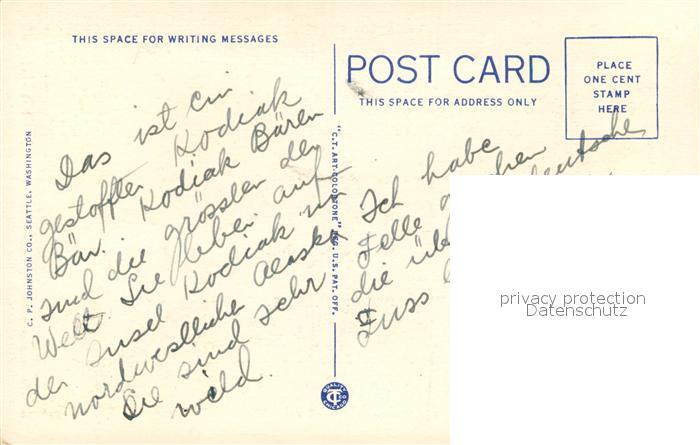 THIS SPACE FOR WRITING MESSAGES
POST CARD
THIS SPACE FOR ADDRESS ONLY
PLACE
ONE CENT
STAMP
HERE
C. P. JOHNSTON CO., SEATTLE, WASHINGTON
Das ist ein
gestoffter Kodiak
Bär. Kodiak Bären
sind die grössten der
Welt. Sie leben auf
der Insel Kodiak im
nordwestlichen Alaska
Sie sind sehr
wild.
"C.T. ART-COLORTONE" REG. U.S. PAT. OFF.
QUALITY
CT
CHICAGO
Ich habe
Felle
die
Fuss
privacy protection
Datenschutz